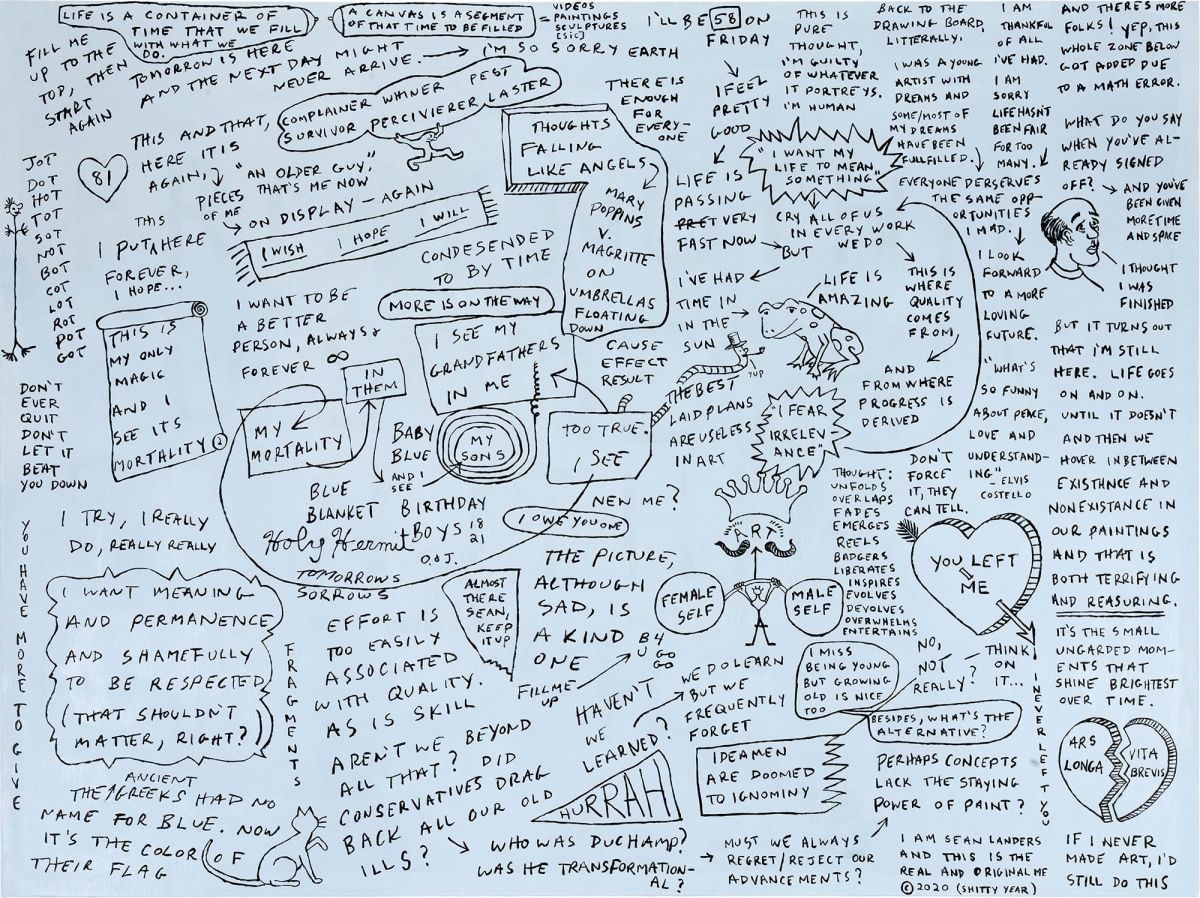 LIFE IS A CONTAINER OF
TIME THAT WE FILL
WITH WHAT WE
DO.
A CANVAS IS A SEGMENT
OF THAT TIME TO BE FILLED
= VIDEOS
PAINTINGS
SCULPTURES
[SIC]
FILL ME
UP TO THE
TOP, THEN
START
AGAIN
TOMORROW IS HERE
AND THE NEXT DAY MIGHT
NEVER ARRIVE.
I'M SO SORRY EARTH
COMPLAINER WHINER PEST
SURVIVOR PERCIVIERER LASTER
THIS AND THAT,
HERE IT IS
AGAIN,
PIECES
OF ME
"AN OLDER GUY,"
THAT'S ME NOW
ON DISPLAY – AGAIN
I WISH I HOPE I WILL
JOT
DOT
HOT
TOT
SOT
NOT
BOT
COT
LOT
ROT
POT
GOT
81
THIS
I PUT HERE
FOREVER,
I HOPE...
THIS IS
MY ONLY
MAGIC
AND I
SEE ITS
MORTALITY
DON'T
EVER
QUIT
DON'T
LET IT
BEAT
YOU DOWN
I WANT TO BE
A BETTER
PERSON, ALWAYS &
FOREVER ∞
CONDESENDED
TO BY TIME
MORE IS ON THE WAY
I SEE MY
GRANDFATHERS
IN ME
IN
THEM
MY
MORTALITY
BABY
BLUE
AND I
SEE
MY
SONS
TOO TRUE.
I SEE
BLUE
BLANKET BIRTHDAY
Holy Hermit BOYS 18
21
O. & J.
TOMORROWS
SORROWS
THERE IS
ENOUGH
FOR
EVERY-
ONE
THOUGHTS
FALLING
LIKE ANGELS
MARY
POPPINS
V.
MAGRITTE
ON
UMBRELLAS
FLOATING
DOWN
CAUSE
EFFECT
RESULT
I'LL BE 58 ON
FRIDAY
I FEEL
PRETTY
GOOD
LIFE IS
PASSING
PRET VERY
FAST NOW
BUT
I'VE HAD
TIME IN
IN THE
SUN
YUP
THE BEST
LAID PLANS
ARE USELESS
IN ART
NEW ME?
I OWE YOU ONE
THIS IS
PURE
THOUGHT,
I'M GUILTY
OF WHATEVER
IT PORTREYS.
I'M HUMAN
"I WANT MY
LIFE TO MEAN
SOMETHING"
CRY ALL OF US
IN EVERY WORK
WE DO
LIFE IS
AMAZING
THIS IS
WHERE
QUALITY
COMES
FROM,
AND
FROM WHERE
PROGRESS IS
DERIVED
"I FEAR
IRRELEV-
ANCE"
BACK TO THE
DRAWING BOARD,
LITTERALLY.
I WAS A YOUNG
ARTIST WITH
DREAMS AND
SOME/MOST OF
MY DREAMS
HAVE BEEN
FULLFILLED.
I AM
THANKFUL
OF ALL
I'VE HAD.
I AM
SORRY
LIFE HASN'T
BEEN FAIR
FOR TOO
MANY.
EVERYONE DERSERVES
THE SAME OPP-
ORTUNITIES
I HAD.
I LOOK
FORWARD
TO A MORE
LOVING
FUTURE.
"WHAT'S
SO FUNNY
ABOUT PEACE,
LOVE AND
UNDERSTAND-
ING" – ELVIS
COSTELLO
DON'T
FORCE
IT, THEY
CAN TELL.
AND THERE'S MORE
FOLKS! YEP, THIS
WHOLE ZONE BELOW
GOT ADDED DUE
TO A MATH ERROR.
WHAT DO YOU SAY
WHEN YOU'VE AL-
READY SIGNED
OFF?
AND YOU'VE
BEEN GIVEN
MORE TIME
AND SPACE
I THOUGHT
I WAS
FINISHED
BUT IT TURNS OUT
THAT I'M STILL
HERE. LIFE GOES
ON AND ON.
UNTIL IT DOESN'T
AND THEN WE
HOVER INBETWEEN
EXISTNCE AND
NONEXISTANCE IN
OUR PAINTINGS
AND THAT IS
BOTH TERRIFYING
AND REASURING.
IT'S THE SMALL
UNGARDED MOM-
ENTS THAT
SHINE BRIGHTEST
OVER TIME.
ARS
LONGA
VITA
BREVIS
IF I NEVER
MADE ART, I'D
STILL DO THIS
YOU HAVE MORE TO GIVE
I TRY, I REALLY
DO, REALLY REALLY
I WANT MEANING
AND PERMANENCE
AND SHAMEFULLY
TO BE RESPECTED
(THAT SHOULDN'T
MATTER, RIGHT?)
FRAGMENTS
ANCIENT
THE/GREEKS HAD NO
NAME FOR BLUE. NOW
IT'S THE COLOR OF
THEIR FLAG
EFFORT IS
TOO EASILY
ASSOCIATED
WITH QUALITY.
AS IS SKILL
AREN'T WE BEYOND
ALL THAT? DID
CONSERVATIVES DRAG
BACK ALL OUR OLD
ILLS?
ALMOST
THERE
SEAN,
KEEP
IT UP
THE PICTURE,
ALTHOUGH
SAD, IS
A KIND
ONE
B4
U GO
GO
FILL ME
UP
HAVEN'T
WE
LEARNED?
WE DO LEARN
BUT WE
FREQUENTLY
FORGET
HURRAH
WHO WAS DUCHAMP?
WAS HE TRANSFORMATION-
AL?
IDEAMEN
ARE DOOMED
TO IGNOMINY
MUST WE ALWAYS
REGRET/REJECT OUR
ADVANCEMENTS?
ART
FEMALE
SELF
MALE
SELF
THOUGHT:
UNFOLDS
OVERLAPS
FADES
EMERGES
REELS
BADGERS
LIBERATES
INSPIRES
EVOLVES
DEVOLVES
OVERWHELMS
ENTERTAINS
YOU LEFT
ME
I MISS
BEING YOUNG
BUT GROWING
OLD IS NICE
TOO
NO,
NOT
REALLY?
THINK
ON
IT...
BESIDES, WHAT'S THE
ALTERNATIVE?
I NEVER LEFT YOU
PERHAPS CONCEPTS
LACK THE STAYING
POWER OF PAINT?
I AM SEAN LANDERS
AND THIS IS THE
REAL AND ORIGINAL ME
© 2020 (SHITTY YEAR)